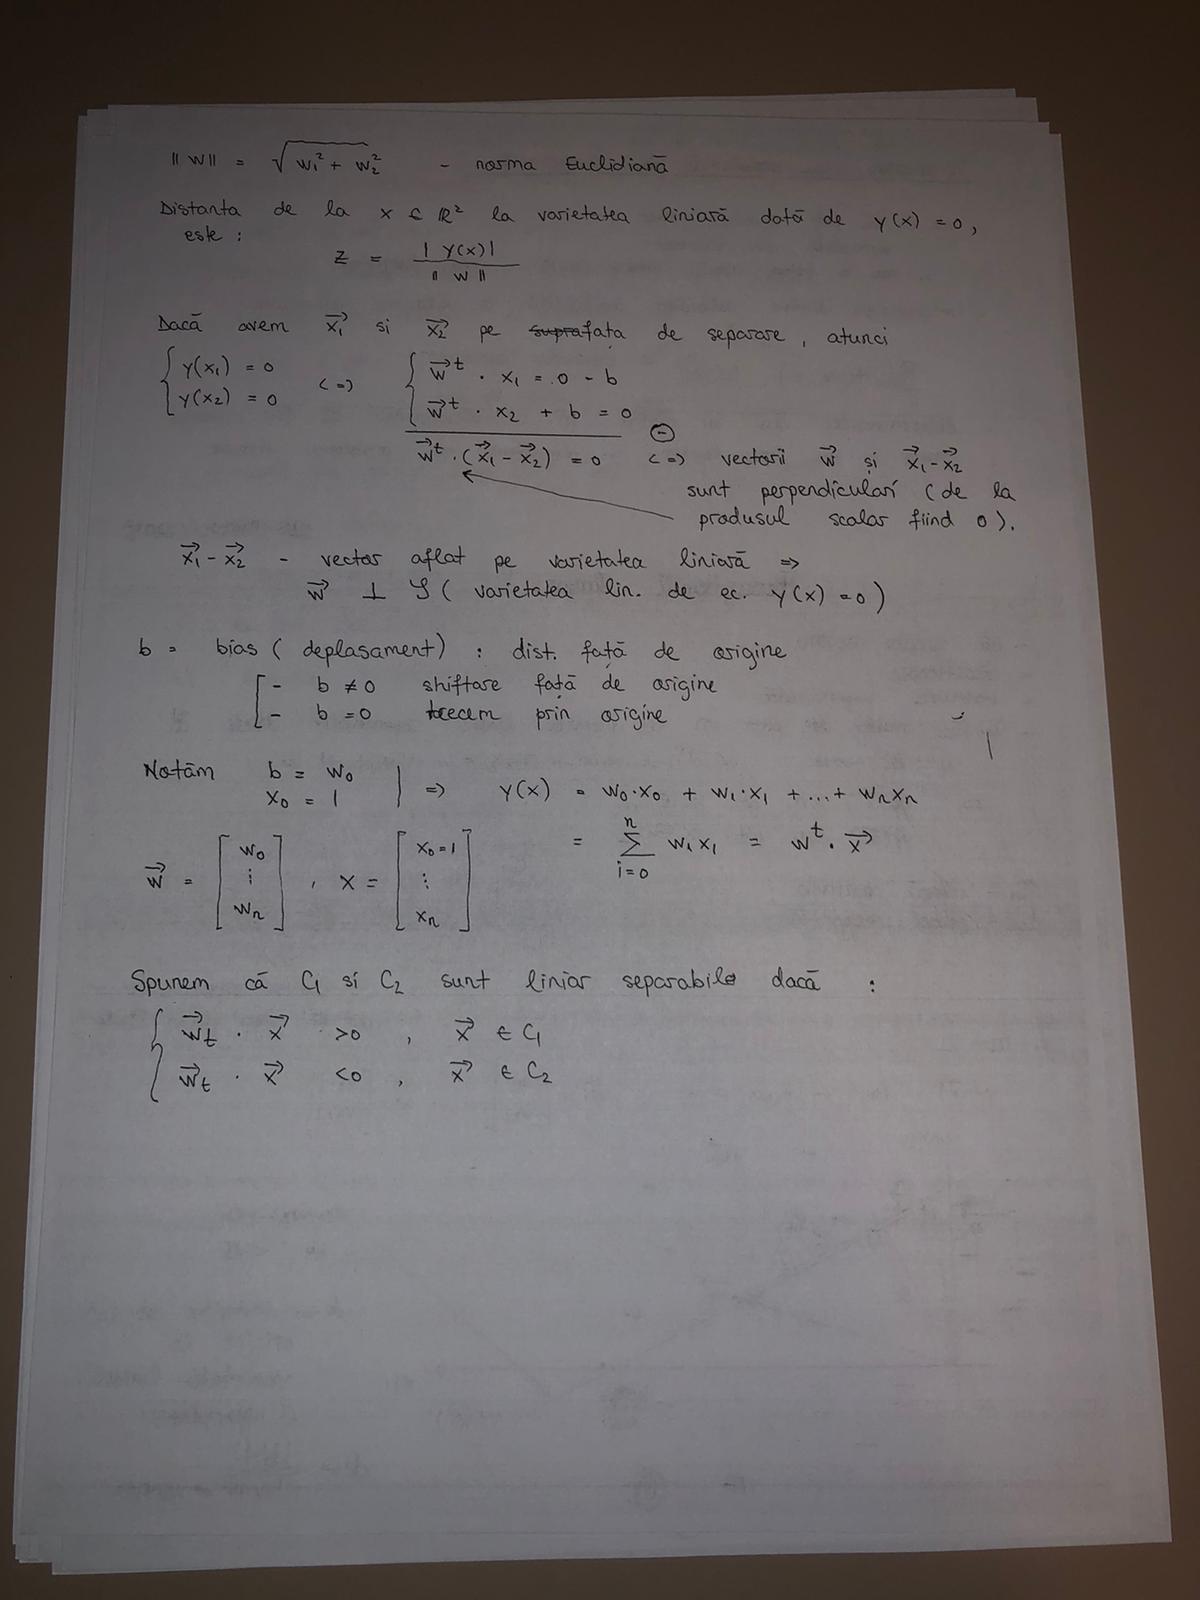 ||W|| = √(w₁² + w₂²) - norma Euclidiană
Distanta de la x ∈ ℝ² la varietatea liniară dată de y(x) = 0,
este :
z = |y(x)| / ||W||
Dacă avem x₁→ si x₂→ pe suprafața de separare, atunci
{ y(x₁) = 0 <=> { w→ᵗ · x₁ = 0 - b
{ y(x₂) = 0 { w→ᵗ · x₂ + b = 0
⊖
w→ᵗ · (x₁→ - x₂→) = 0 <=> vectorii w→ și x₁→ - x₂→
sunt perpendiculari (de la
produsul scalar fiind 0).
x₁→ - x₂→ - vector aflat pe varietatea liniară =>
w→ ⊥ Y ( varietatea lin. de ec. y(x) = 0 )
b = bias ( deplasament) : dist. față de origine
[ - b ≠ 0 shiftare față de origine
- b = 0 trecem prin origine
Notăm b = w₀
x₀ = 1 | => y(x) = w₀·x₀ + w₁·x₁ + ... + wₙxₙ
= Σ(i=0..n) wᵢ xᵢ = wᵗ · x→
w→ = [ w₀ ⋮ wₙ ] , x = [ x₀ = 1 ⋮ xₙ ]
Spunem că C₁ si C₂ sunt liniar separabile dacă :
{ w→ₜ · x→ >0 , x→ ∈ C₁
{ w→ₜ · x→ <0 , x→ ∈ C₂